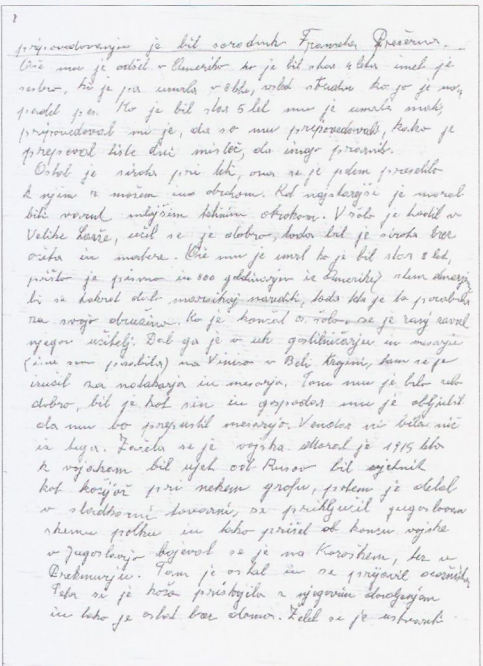 pripovedovanju je bil sorodnik Franceta Prešerna.
Oče mu je odšel v Ameriko ko je bil star 4 leta imel je
sestro, ki je pa umrla v 8 letu, vsled straha ko jo je na,
padel pes. Ko je bil star 5 let mu je umrla mati,
pripovedoval mi je, da so mu pripovedovali, kako je
prepeval tiste dni misleč, da imajo praznik.
Ostal je sirota pri teti, ona se je potem preselila
k njim z možem ino otrokom. Kot najstarejši je moral
biti varuh mlajšim tetinim otrokom. V šolo je hodil v
Velike Lašče, učil se je dobro, toda bil je sirota brez
očeta in matere. Oče mu je umrl ko je bil star 8 let,
prišlo je pismo in 800 goldinarjev iz Amerike, denarja
bi se takrat dalo marsikaj narediti, toda teta je to porabila
za svojo družino. Ko je končal os. šolo, se je zanj zavzel
njegov učitelj. Dal ga je v uk gostilničarju in mesarju
na Vinico v Beli Krajini, tam se je
izučil za natakarja in mesarja. Tam mu je bilo zelo
dobro, bil je kot sin in gospodar mu je obljubil
da mu bo prepustil mesarijo. Vendar ni bilo nič
iz tega. Začela se je vojska. Moral je 1915 leta
k vojakom bil ujet od Rusov bil ujetnik
kot kočijaž pri nekem grofu, potem je delal
v sladkorni tovarni, se priključil jugoslovan
skemu polku in tako prišel ob koncu vojske
v Jugoslavijo bojeval se je na Koroškem, ter v
Prekmurju. Tam je ostal in se prijavil
Teta si je kočo prisvojila z njegovim dovoljenjem
in tako je ostal brez doma. Želel se je ustvariti